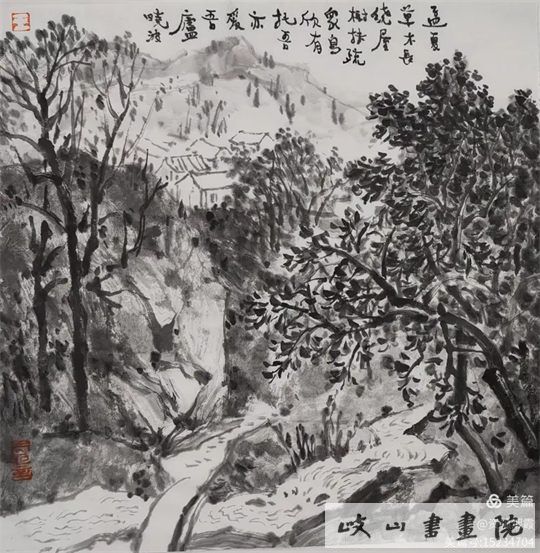 孟夏
草木長
繞屋
樹扶疏
衆鳥
欣有
托吾
亦
愛
吾
廬
曉波
美篇
岐山書畫院
15234704